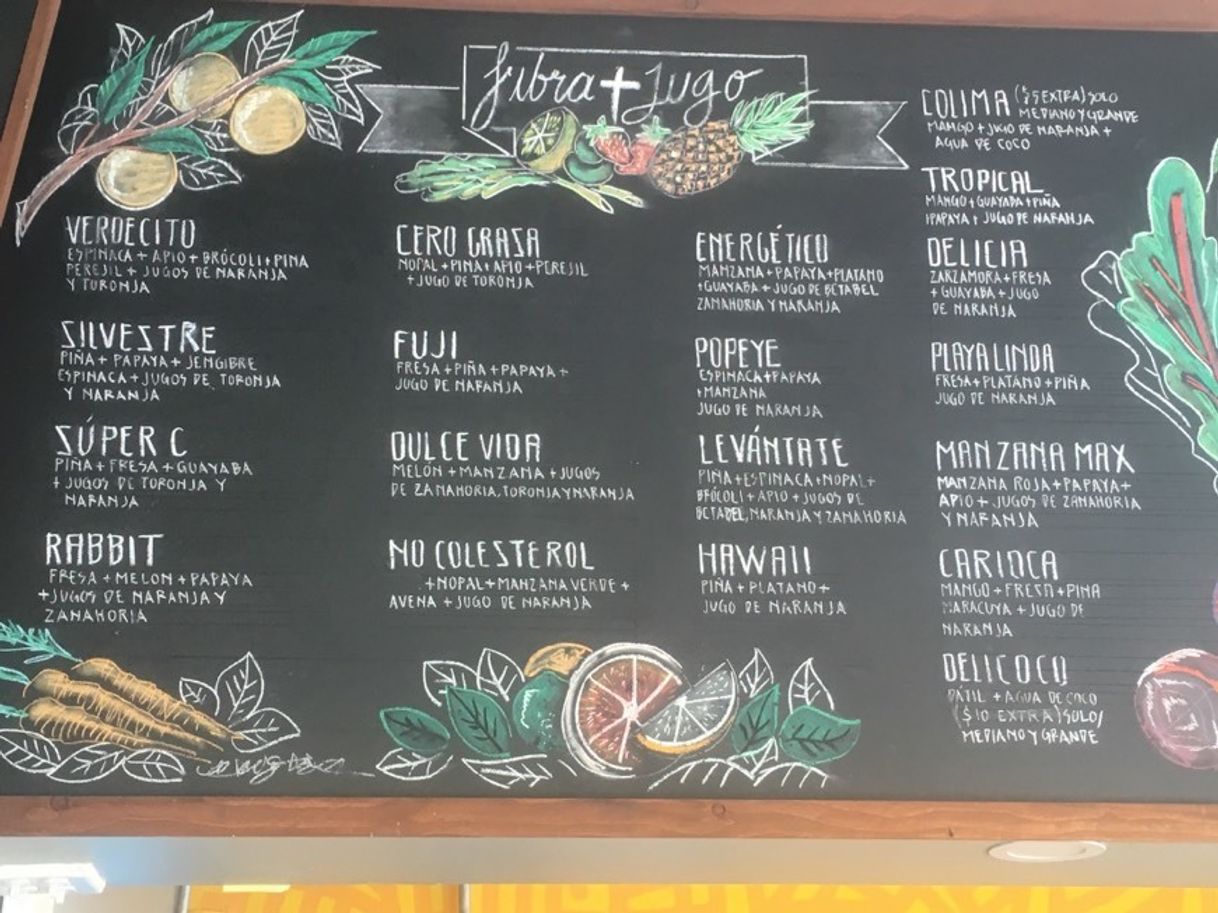 fibra + Jugo
VERDECITO
ESPINACA + APIO + BRÓCOLI + PIÑA
PEREJIL + JUGOS DE NARANJA
Y TORONJA
SILVESTRE
PIÑA + PAPAYA + JENGIBRE
ESPINACA + JUGOS DE TORONJA
Y NARANJA
SÚPER C
PIÑA + FRESA + GUAYABA
+ JUGOS DE TORONJA Y
NARANJA
RABBIT
FRESA + MELON + PAPAYA
+ JUGOS DE NARANJA Y
ZANAHORIA
CERO GRASA
NOPAL + PIÑA + APIO + PEREJIL
+ JUGO DE TORONJA
FUJI
FRESA + PIÑA + PAPAYA +
JUGO DE NARANJA
DULCE VIDA
MELÓN + MANZANA + JUGOS
DE ZANAHORIA, TORONJA Y NARANJA
NO COLESTEROL
+ NOPAL + MANZANA VERDE +
AVENA + JUGO DE NARANJA
ENERGÉTICO
MANZANA + PAPAYA + PLATANO
+ GUAYABA + JUGO DE BETABEL
ZANAHORIA Y NARANJA
POPEYE
ESPINACA + PAPAYA
+ MANZANA
JUGO DE NARANJA
LEVÁNTATE
PIÑA + ESPINACA + NOPAL +
BRÓCOLI + APIO + JUGOS DE
BETABEL, NARANJA Y ZANAHORIA
HAWAII
PIÑA + PLATANO +
JUGO DE NARANJA
COLIMA ($5 EXTRA) SOLO
MEDIANO Y GRANDE
MANGO + JUGO DE NARANJA +
AGUA DE COCO
TROPICAL
MANGO + GUAYABA + PIÑA
+ PAPAYA + JUGO DE NARANJA
DELICIA
ZARZAMORA + FRESA
+ GUAYABA + JUGO
DE NARANJA
PLAYA LINDA
FRESA + PLATANO + PIÑA
JUGO DE NARANJA
MANZANA MAX
MANZANA ROJA + PAPAYA +
APIO + JUGOS DE ZANAHORIA
Y NARANJA
CARIOCA
MANGO + FRESA + PIÑA
MARACUYA + JUGO DE
NARANJA
DELICOCO
DÁTIL + AGUA DE COCO
($10 EXTRA) SOLO/
MEDIANO Y GRANDE